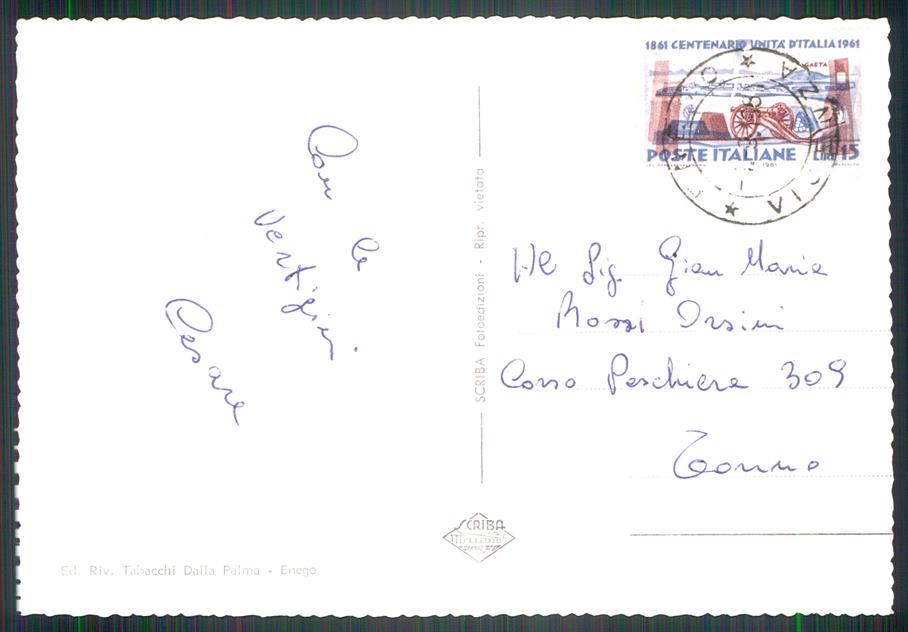 1861 CENTENARIO UNITÀ D'ITALIA 1961
GAETA
POSTE ITALIANE LIRE 15
1961
VICENZA
Con le
vertigini.
Cesare
SCRIBA Fotoedizioni - Ripr. vietata
Al Sig. Gian Maria
Rossi Orsini
Corso Peschiera 309
Torino
SCRIBA
Ed. Riv. Tabacchi Dalla Palma - Enego